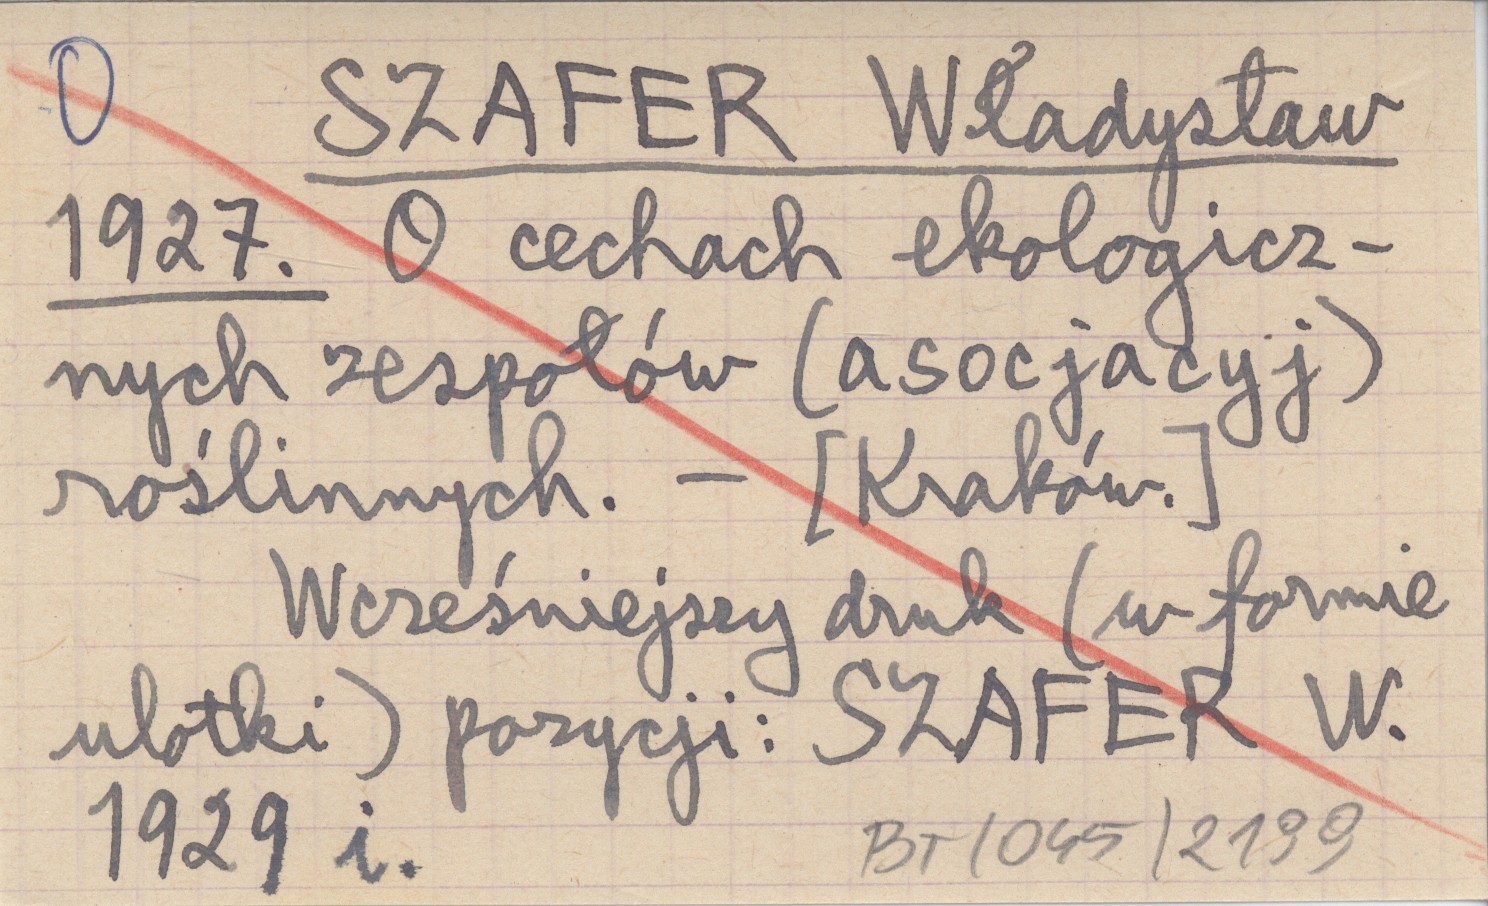 O SZAFER Władysław
1927. O cechach ekologicz-
nych zespołów (asocjacyj)
roślinnych. – [Kraków.]
Wcześniejszy druk (w formie
ulotki) pozycji: SZAFER W.
1929 i.
BT/045/2199